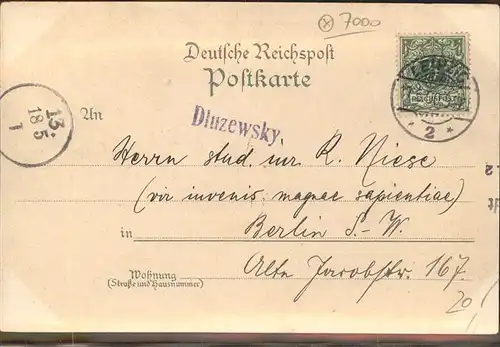 ⓧ 7000
Deutsche Reichspost
Postkarte
LEIPZIG
REICHSPOST
* 2 *
13.
18 5
1
An
Dluzewsky.
Herrn stud. iur R. Niese
(vir iuvenis magnae sapientiae)
in Berlin S.-W.
Wohnung
(Straße und Hausnummer)
Alte Jacobstr. 167.
20,